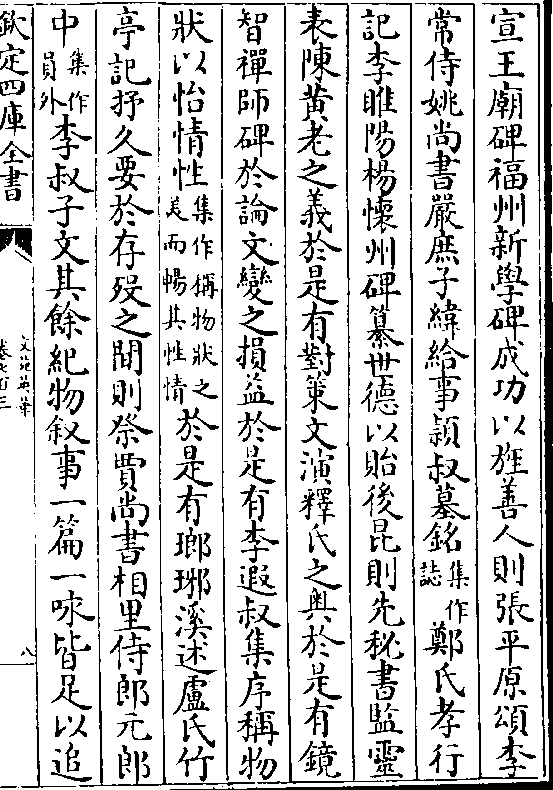 宣王廟碑福州新學碑成功以旌善人則張平原頌李
常侍姚尚書嚴庶子緯給事頴叔墓銘集作誌鄭氏孝行
記李睢陽楊懷州碑纂世德以貽後昆則先秘書監靈
表陳黄老之義於是有對策文演釋氏之奥於是有鏡
智禪師碑於論文變之損益於是有李遐叔集序稱物
狀以怡情性集作稱物狀之美而暢其性情於是有瑯琊溪述盧氏竹
亭記抒久要於存殁之間則祭賈尚書相里侍郎元郎
中集作員外李叔子文其餘紀物叙事一篇一咏皆足以追
欽定四庫全書
文苑英華
卷七百三
八